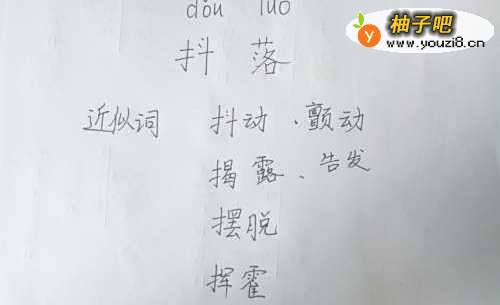 dǒu luò
柚子吧
www.youzi8.cn
抖 落
近似词 抖动、颤动
揭露、告发
摆脱
挥霍